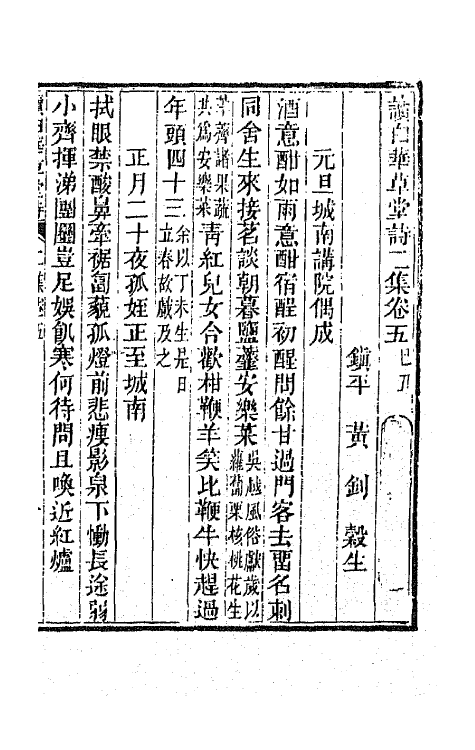 讀白華草堂詩二集卷五 己丑
鎮平 黃釗 穀生
元旦城南講院偶成
酒意酣如雨意酣宿酲初醒問餘甘過門客去畱名刺
同舍生來接茗談朝暮鹽虀安樂菜 吳越風俗獻歲以蘿蔔栗核桃花生荸薺諸果蔬共爲安樂菜 靑紅兒女合歡柑鞭羊笑比鞭牛快趕過
年頭四十三 余以丁未生是日立春故戲及之
正月二十夜孤姪正至城南
拭眼禁酸鼻牽裾㔩藐孤燈前悲瘦影泉下慟長途弱
小齊揮涕團圞豈足娛飢寒何待問且喚近紅爐